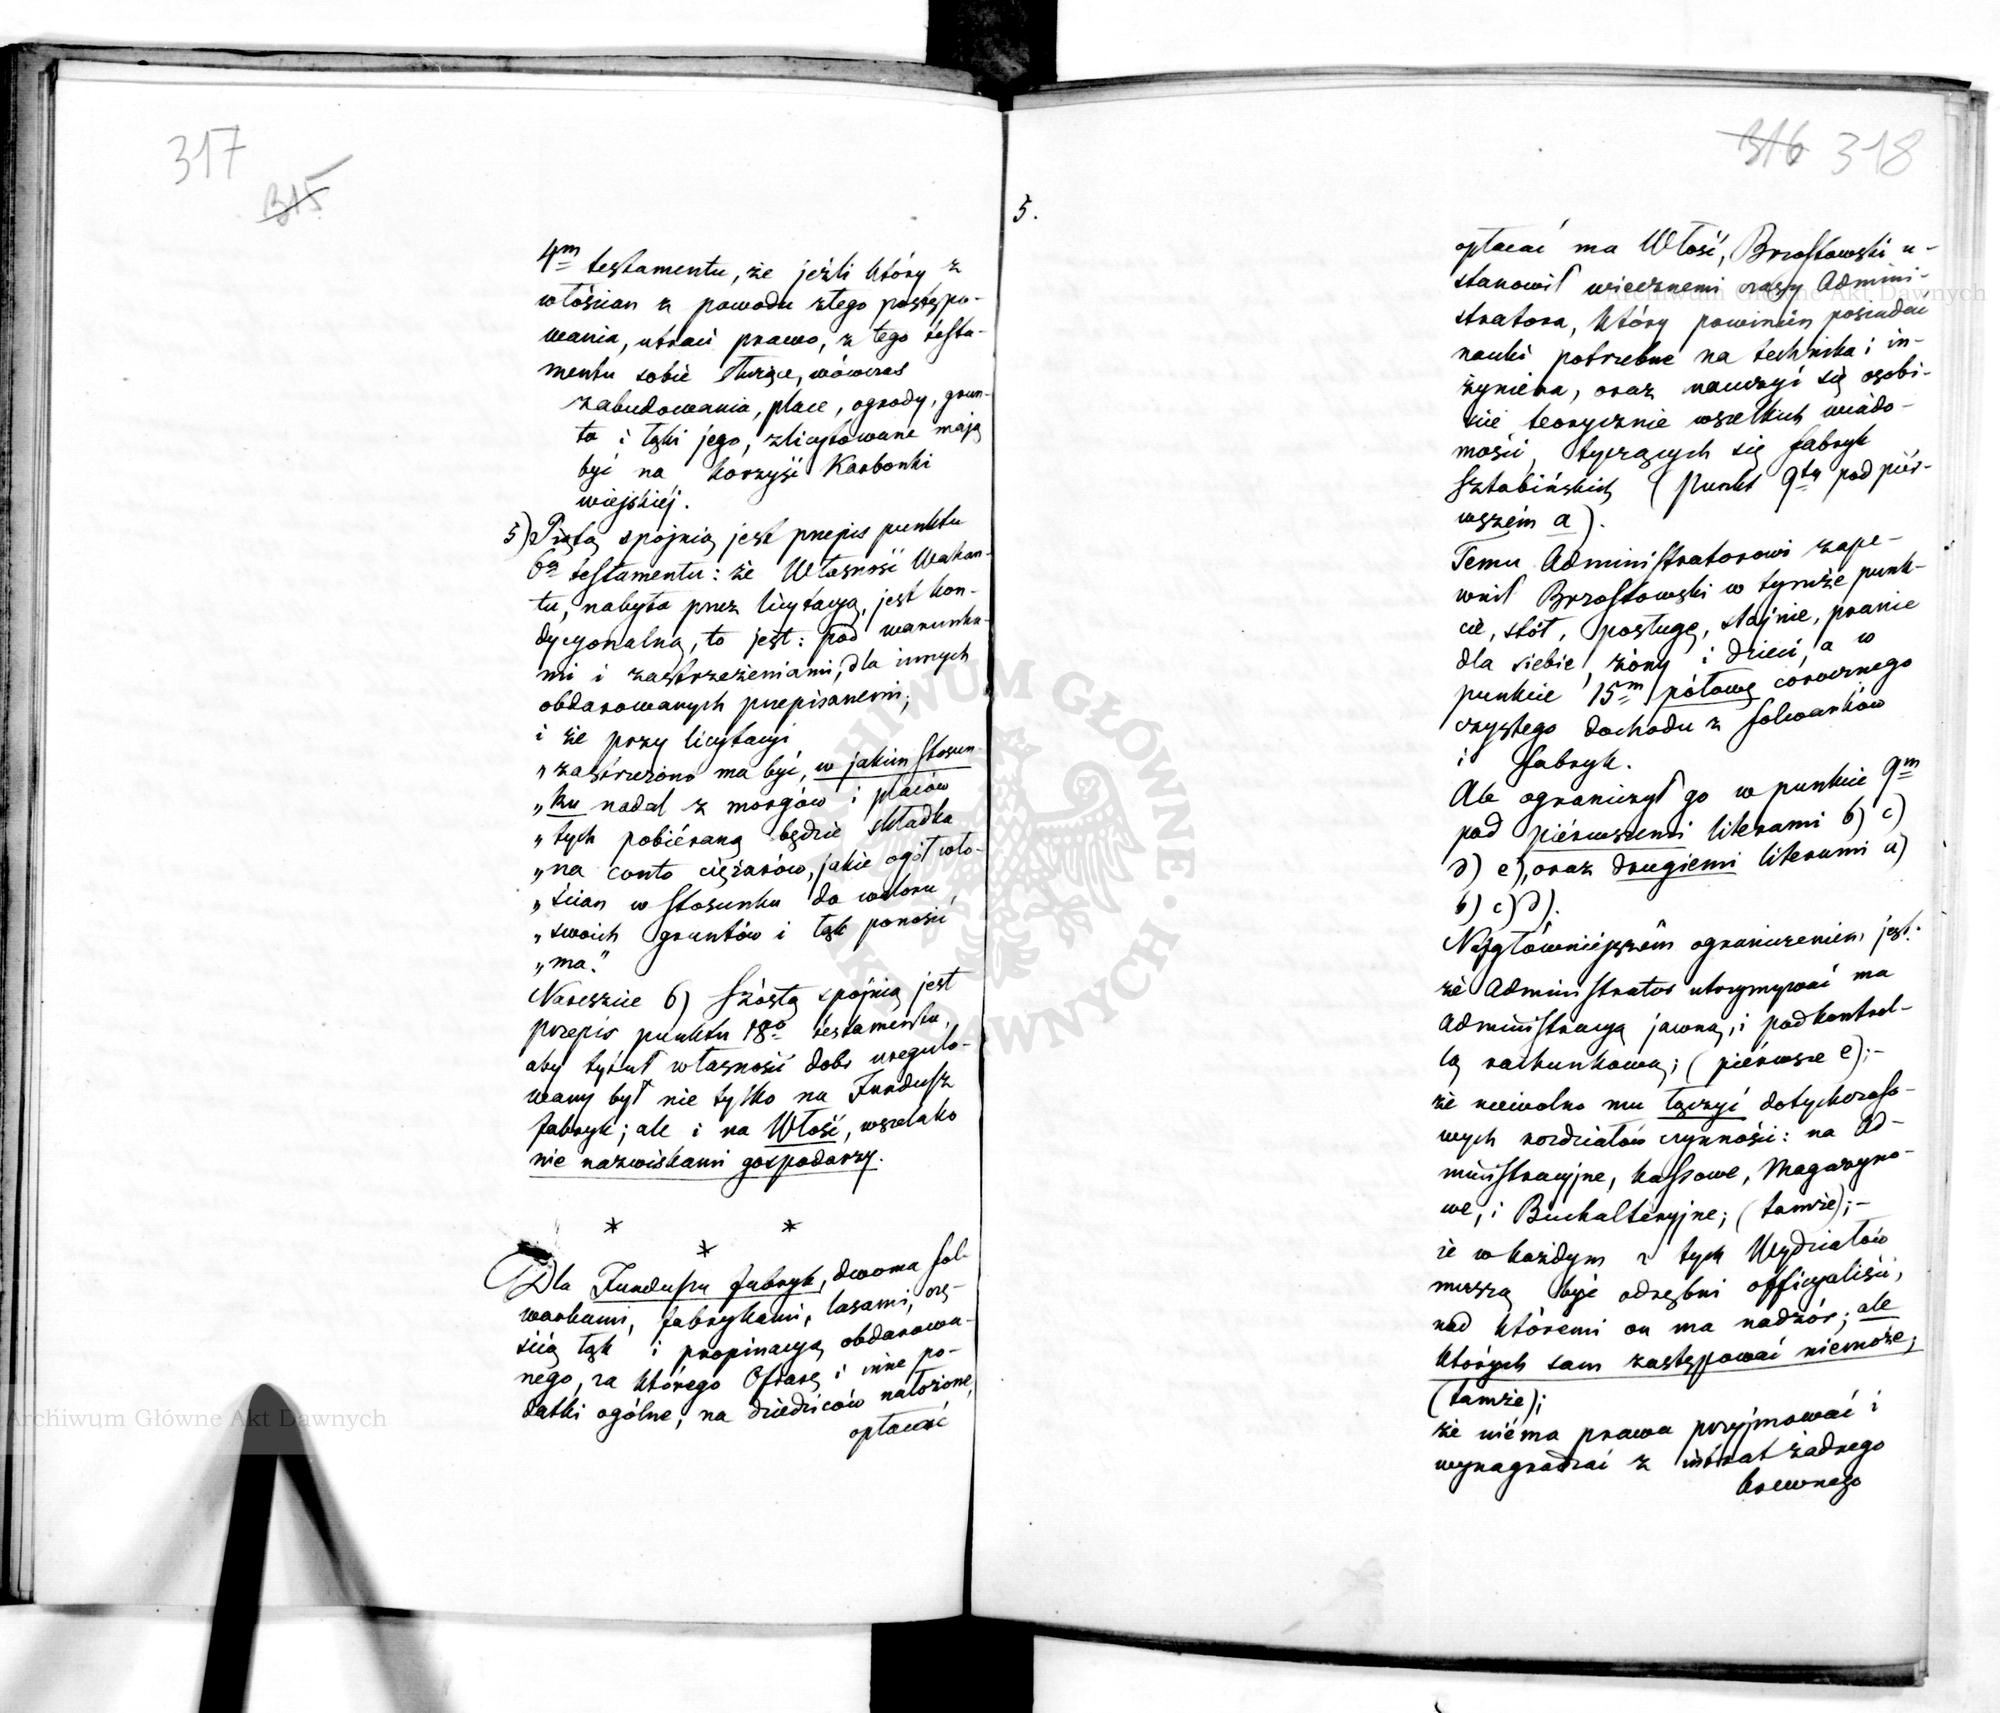 317
315
4m testamentu, że jeżli który z
włościan z powodu złego postępo-
wania, utraci prawo, z tego testa-
mentu sobie służące, wówczas
zabudowania, place, ogrody, grun-
ta i łąki jego, zlicytowane mają
być na korzyść Karbonki
wiejskiéj.
5) Piątą spójnią jest przepis punktu
6go testamentu: że Własność Wakan-
tu, nabyta przez licytacyą, jest kon-
dycyonalną, to jest: pod warunka-
mi i zastrzeżeniami, dla innych
obdarowanych przepisanemi;
i że przy licytacyi
„zastrzeżono ma być, w jakim stosun-
„ku nadal z morgów i placów
„tych pobiéraną będzie składka
„na conto ciężarów, jakie ogół wło-
„ścian w stosunku do waloru
„swoich gruntów i łąk ponosić
„ma."
Nareszcie 6) Szóstą spójnią jest
przepis punktu 18go testamentu,
aby tytuł własności dobr uregulo-
wany był nie tylko na Fundusz
fabryk; ale i na Włość, wszelako
nie nazwiskami gospodarzy.
* * *
Dla Funduszu fabryk, dwoma fol-
warkami, fabrykami, lasami, czę-
ścią łąk i propinacyą obdarowa-
nego, za którego Ofiarę i inne po-
datki ogólne, na dziedziców nałożone,
opłacać
5.
316 318
opłacać ma Włość, Brzostowski u-
stanowił wiecznemi czasy Admini-
stratora, który powinien posiadać
nauki potrzebne na technika i in-
żyniera, oraz nauczyć się osobi-
ście teorycznie wszelkich wiado-
mości, tyczących się fabryk
Sztabińskich (Punkt 9ty pod piér-
wszém a).
Temu Administratorowi zape-
wnił Brzostowski w tymże punk-
cie, stół, posługę, stajnie, pranie
dla siebie, żony i dzieci, a w
punkcie 15m połowę corocznego
czystego dochodu z folwarków
i fabryk.
Ale ograniczył go w punkcie 9m
pod piérwszemi literami b) c)
d) e), oraz drugiemi literami a)
b) c) d).
Najgłówniejszém ograniczeniem jest:
że Administrator utrzymywać ma
Administracyą jawną, i pod kontrol-
lą rachunkową; (piérwsze e);-
że niewolno mu łączyć dotychczaso-
wych rozdziałów czynności: na Ad-
ministracyjne, kassowe, Magazyno-
we, i Buchalteryjne; (tamże);-
że w każdym z tych Wydziałów
muszą być odrębni officyaliści,
nad któremi on ma nadzór; ale
których sam zastępować niemoże;
(tamże);
że niéma prawa przyjmować i
wynagradzać z intrat żadnego
krewnego
Archiwum Główne Akt Dawnych
Archiwum Główne Akt Dawnych
ARCHIWUM GŁÓWNE AKT DAWNYCH